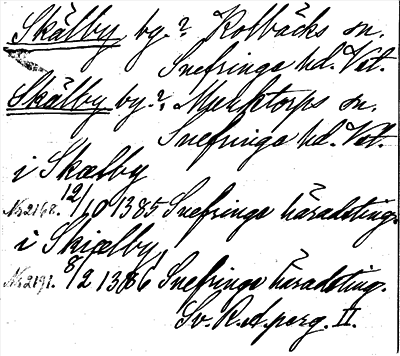 Skälby by? Kolbäcks sn.
Snefringe hd. Vstl.
Skälby by?, Munktorps sn.
Snefringe hd. Vstl.
i Skælby
Nr 2168. 12/10 1385 Snefringe häradsting.
i Skiælby
Nr 2191. 8/2 1386 Snefringe häradsting.
Sv. R. d. perg. II.